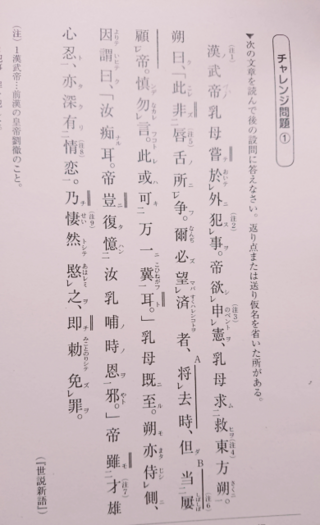 チャレンジ問題①
▼次の文章を読んで後の設問に答えなさい。返り点または送り仮名を省いた所がある。
漢武帝乳母嘗於外犯事。帝欲申憲、乳母求救東方朔。
朔曰、「此非唇舌所争。爾必望済者、将去時、但当屡
顧帝。慎勿言。此或可万一冀耳。」乳母既至。朔亦侍側、
因謂曰、「汝痴耳。帝豈復憶汝乳哺時恩邪。」帝雖才雄
心忍、亦深有情恋。乃悽然愍之、即勅免罪。
（『世説新語』）
（注）1漢武帝…前漢の皇帝劉徹のこと。